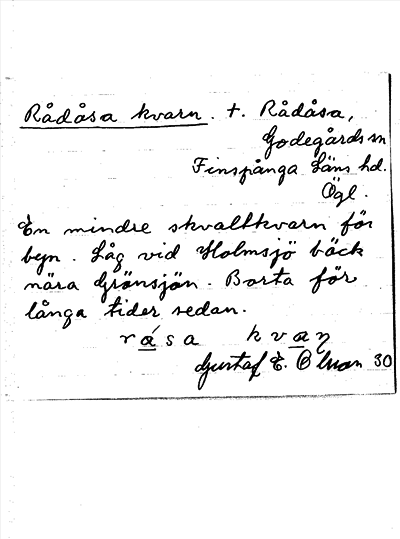 Rådåsa kvarn. t. Rådåsa,
Godegårds sn
Finspånga Läns hd.
Ögl.
En mindre skvaltkvarn för
byn. Låg vid Holmsjö bäck
nära Grönsjön. Borta för
långa tider sedan.
rása kvaŋ
Gustaf E. Olsson 30